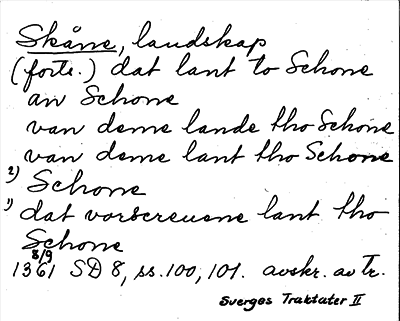 Skåne, landskap
(forts.) dat lant to Schone
an Schone
van deme lande tho Schone
van deme lant tho Schone
2) Schone
1) dat vorscreuene lant tho
Schone
8/9
1361 SD 8, ss. 100, 101. avskr. av Tr.
Sverges Traktater II